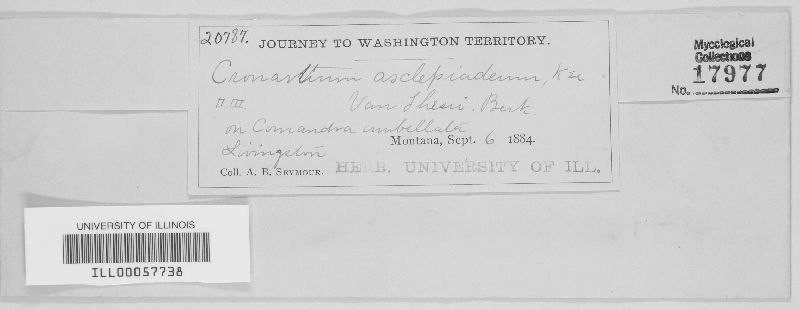 20787.
JOURNEY TO WASHINGTON TERRITORY.
Cronartium asclepiadeum, Kze
II. III. Var Thesii. Berk.
on Comandra umbellata
Livingston
Montana, Sept. 6 1884.
Coll. A. B. SEYMOUR. HERB. UNIVERSITY OF ILL.
Mycological
Collections
No. 17977
UNIVERSITY OF ILLINOIS
ILL00057738